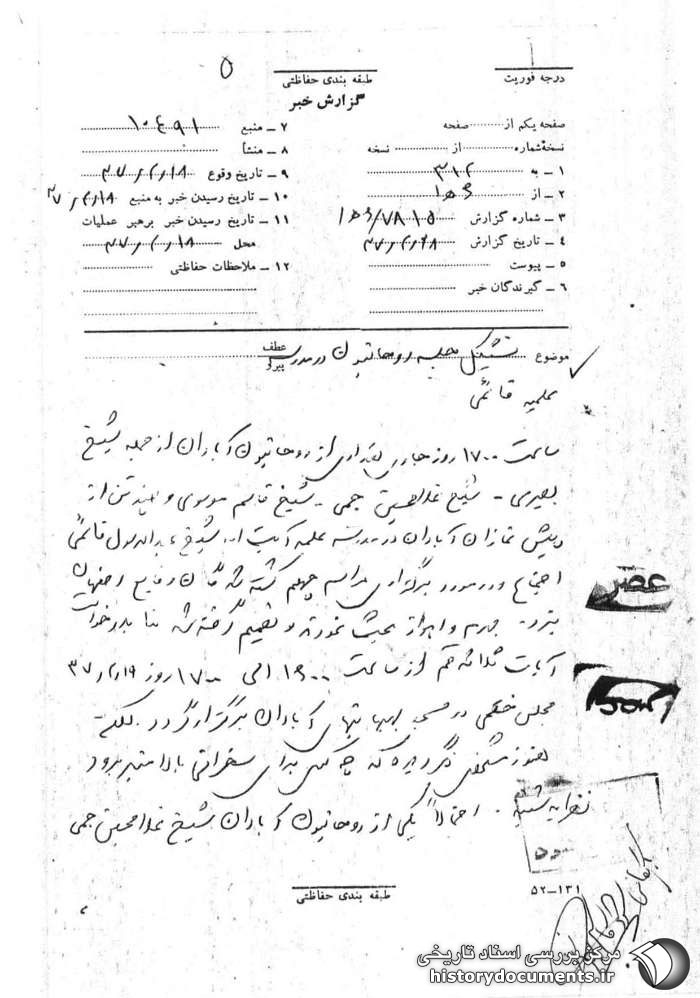 درجه فوریت
طبقه بندی حفاظتی
گزارش خبر
صفحه یکم از صفحه
نسخه شماره از نسخه
۱ ــ به ۳۱۲
۲ ــ از ۱۶ ه
۳ ــ شماره گزارش
۴ ــ تاریخ گزارش
۵ ــ پیوست
۶ ــ گیرندگان خبر
۷ ــ منبع ۱۰۴۹۱
۸ ــ منشأ
۹ ــ تاریخ وقوع
۱۰ ــ تاریخ رسیدن خبر به منبع
۱۱ ــ تاریخ رسیدن خبر برهبر عملیات
محل
۱۲ ــ ملاحظات حفاظتی
موضوع تشکیل جلسه روحانیون در مدرسه
عطف
پیرو
علمیه قائمی
ساعت ۱۷۰۰ روز جاری تعدادی از روحانیون آبادان از جمله شیخ
بصیری - شیخ غلامحسین جمی - شیخ قاسم موسوی و چند تن از
پیش نمازان آبادان در مدرسه علمیه آیت اله شیخ عبدالرسول قائمی
اجتماع و در مورد برگزاری مراسم چهلم کشته شدگان وقایع اصفهان
یزد - جهرم و اهواز بحث نموده و تصمیم گرفته شد بنا بدرخواست
آیات ثلاثه قم از ساعت ۱۶۰۰ الی ۱۷۰۰ روز
مجلس ختمی در مسجد بهبهانیهای آبادان برگزار گردد
هنوز مشخص نگردیده که چه کسی برای سخنرانی بالا منبر برود
نظریه شنبه - احتمالاً یکی از روحانیون آبادان شیخ غلامحسین جمی
عصر
طبقه بندی حفاظتی
۵۲ــ۱۳۱
مرکز بررسی اسناد تاریخی
historydocuments.ir